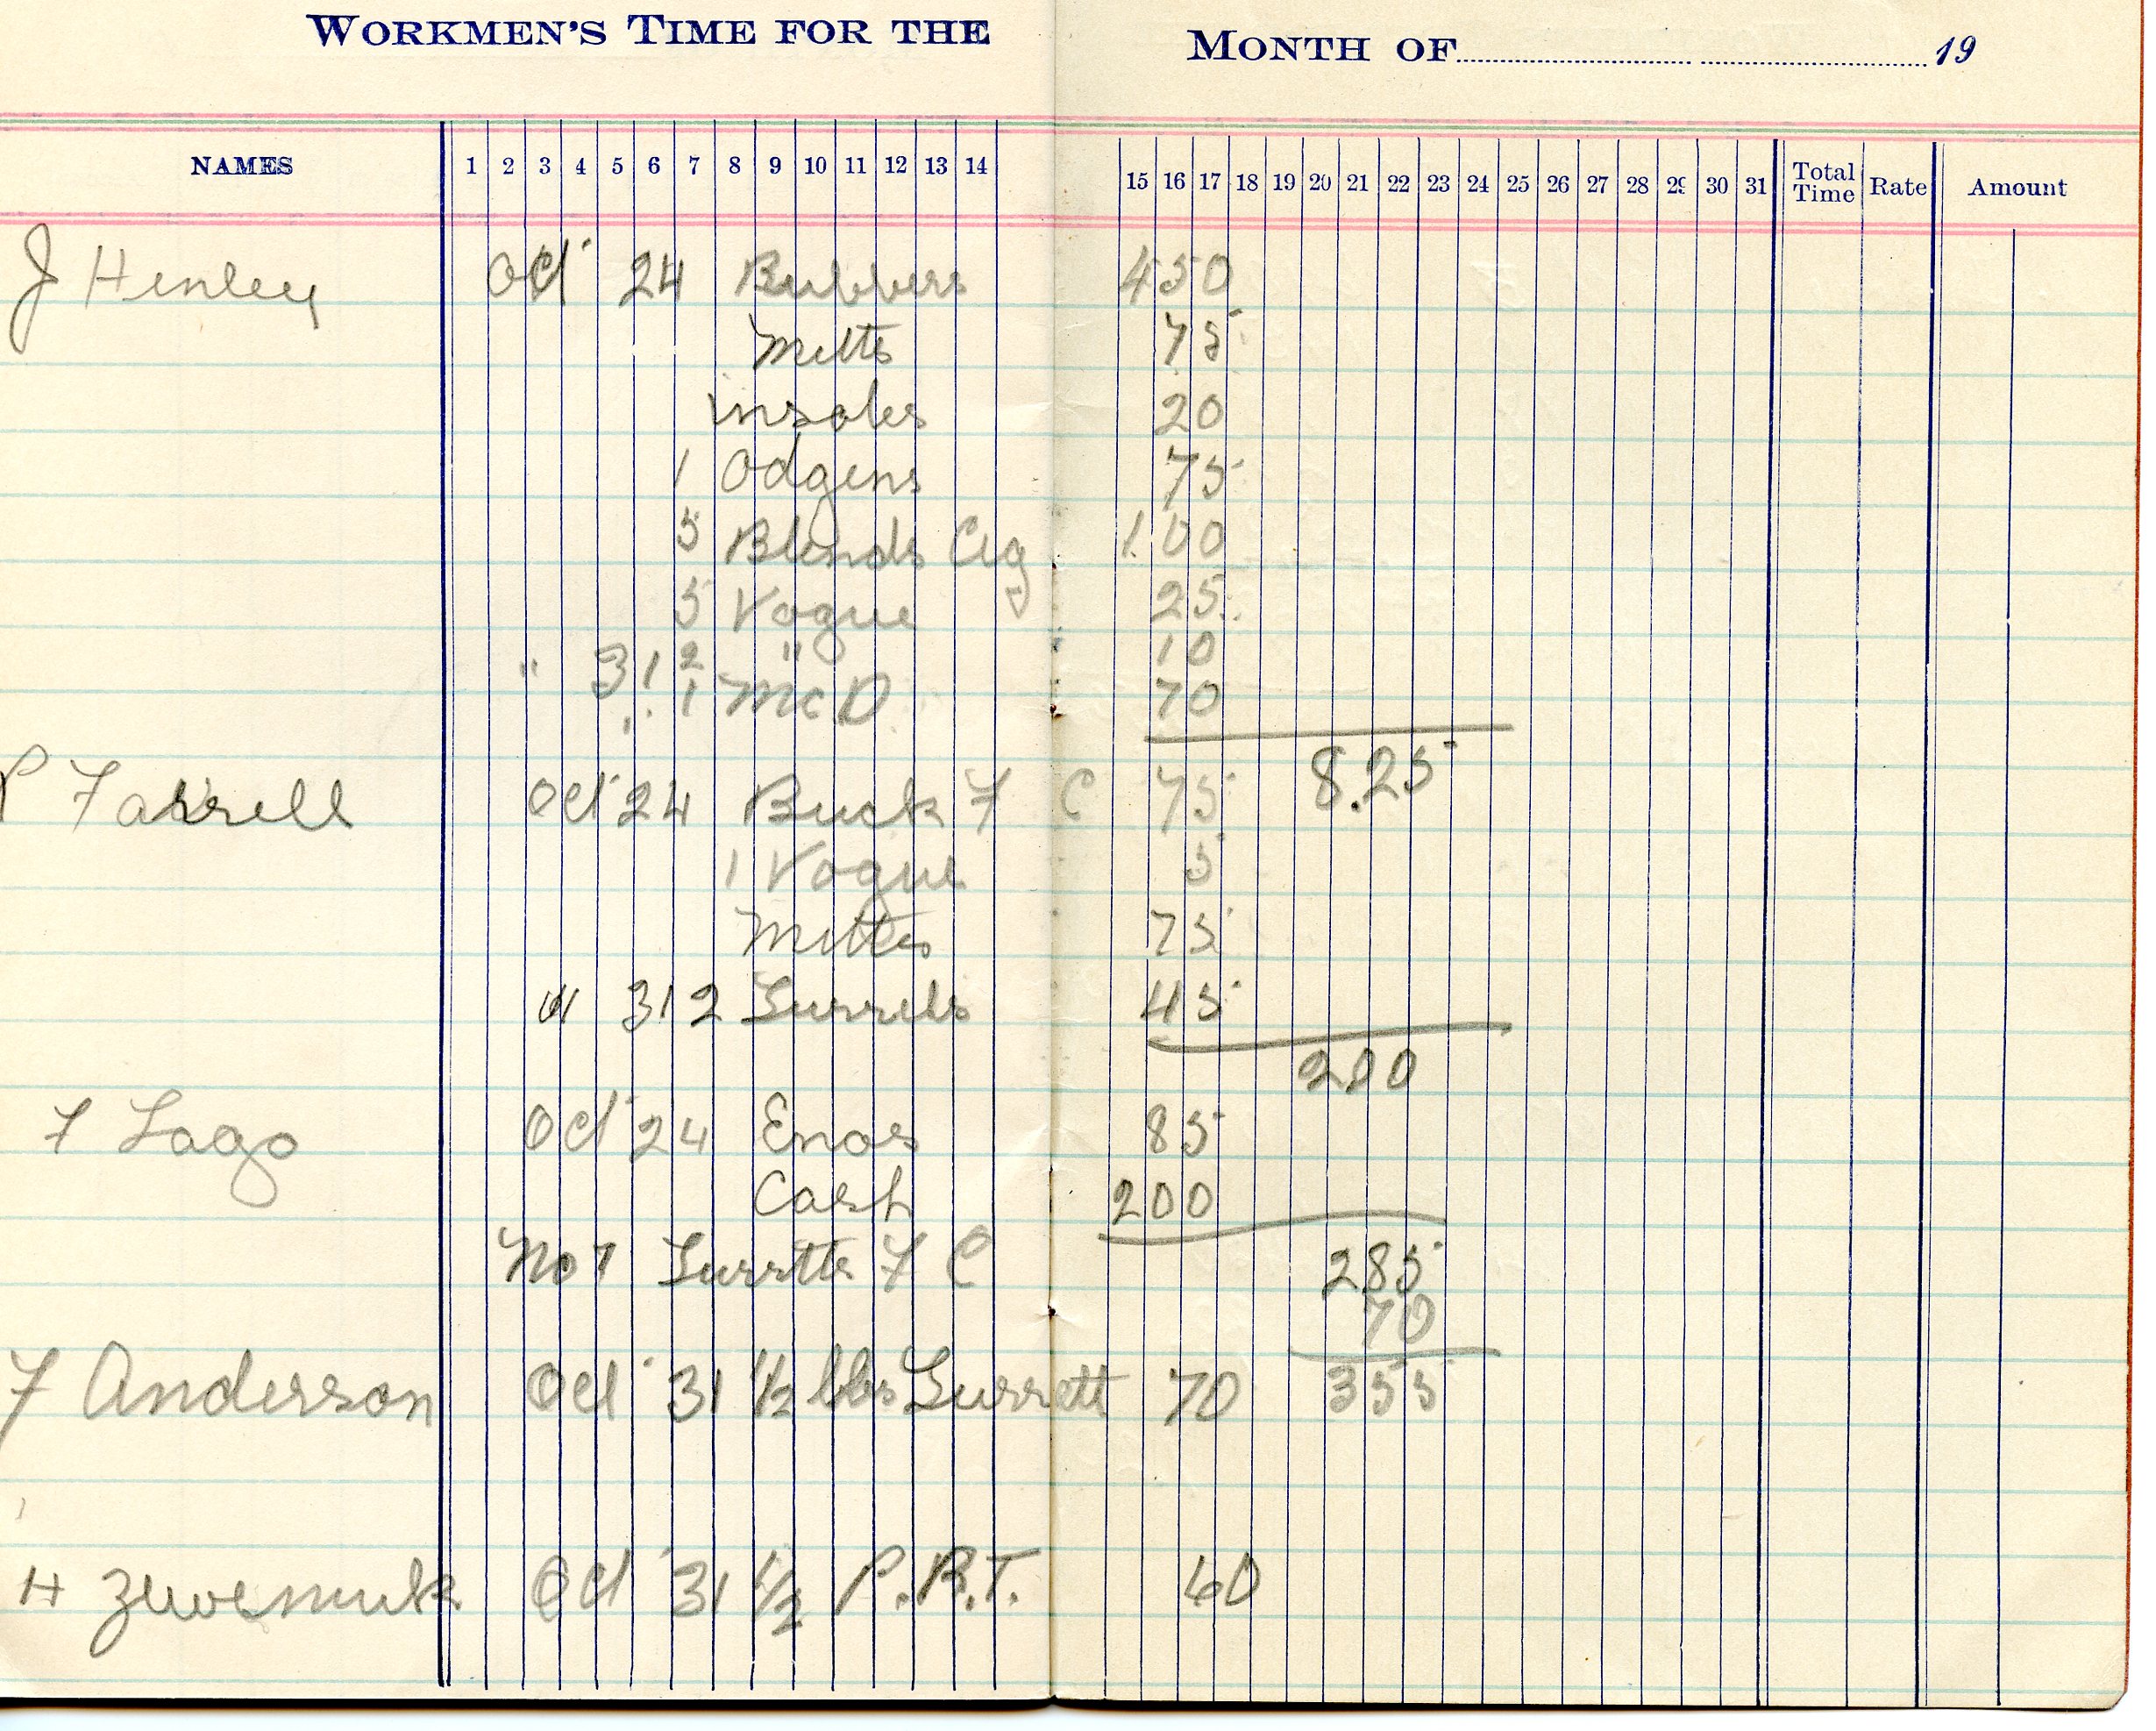 WORKMEN'S TIME FOR THE MONTH OF 19
NAMES 1 2 3 4 5 6 7 8 9 10 11 12 13 14 15 16 17 18 19 20 21 22 23 24 25 26 27 28 29 30 31 Total Time Rate Amount
J Henley Oct 24 Rubbers 450
Mitts 75
insoles 20
1 Odgens 75
5 Blends Cig 1.00
5 Vogue 25
2 " 10
" 31 1 McD 70
8.25
P Farrell Oct 24 Buck F C 75
1 Vogue 5
Mitts 75
" 31 2 45
200
F Lago Oct 24 Enos 85
Cash 200
285
No 7 F C 70
355
F Anderson Oct 31 1/2 lbs 70
H Oct 31 1/2 P.R.T. 60